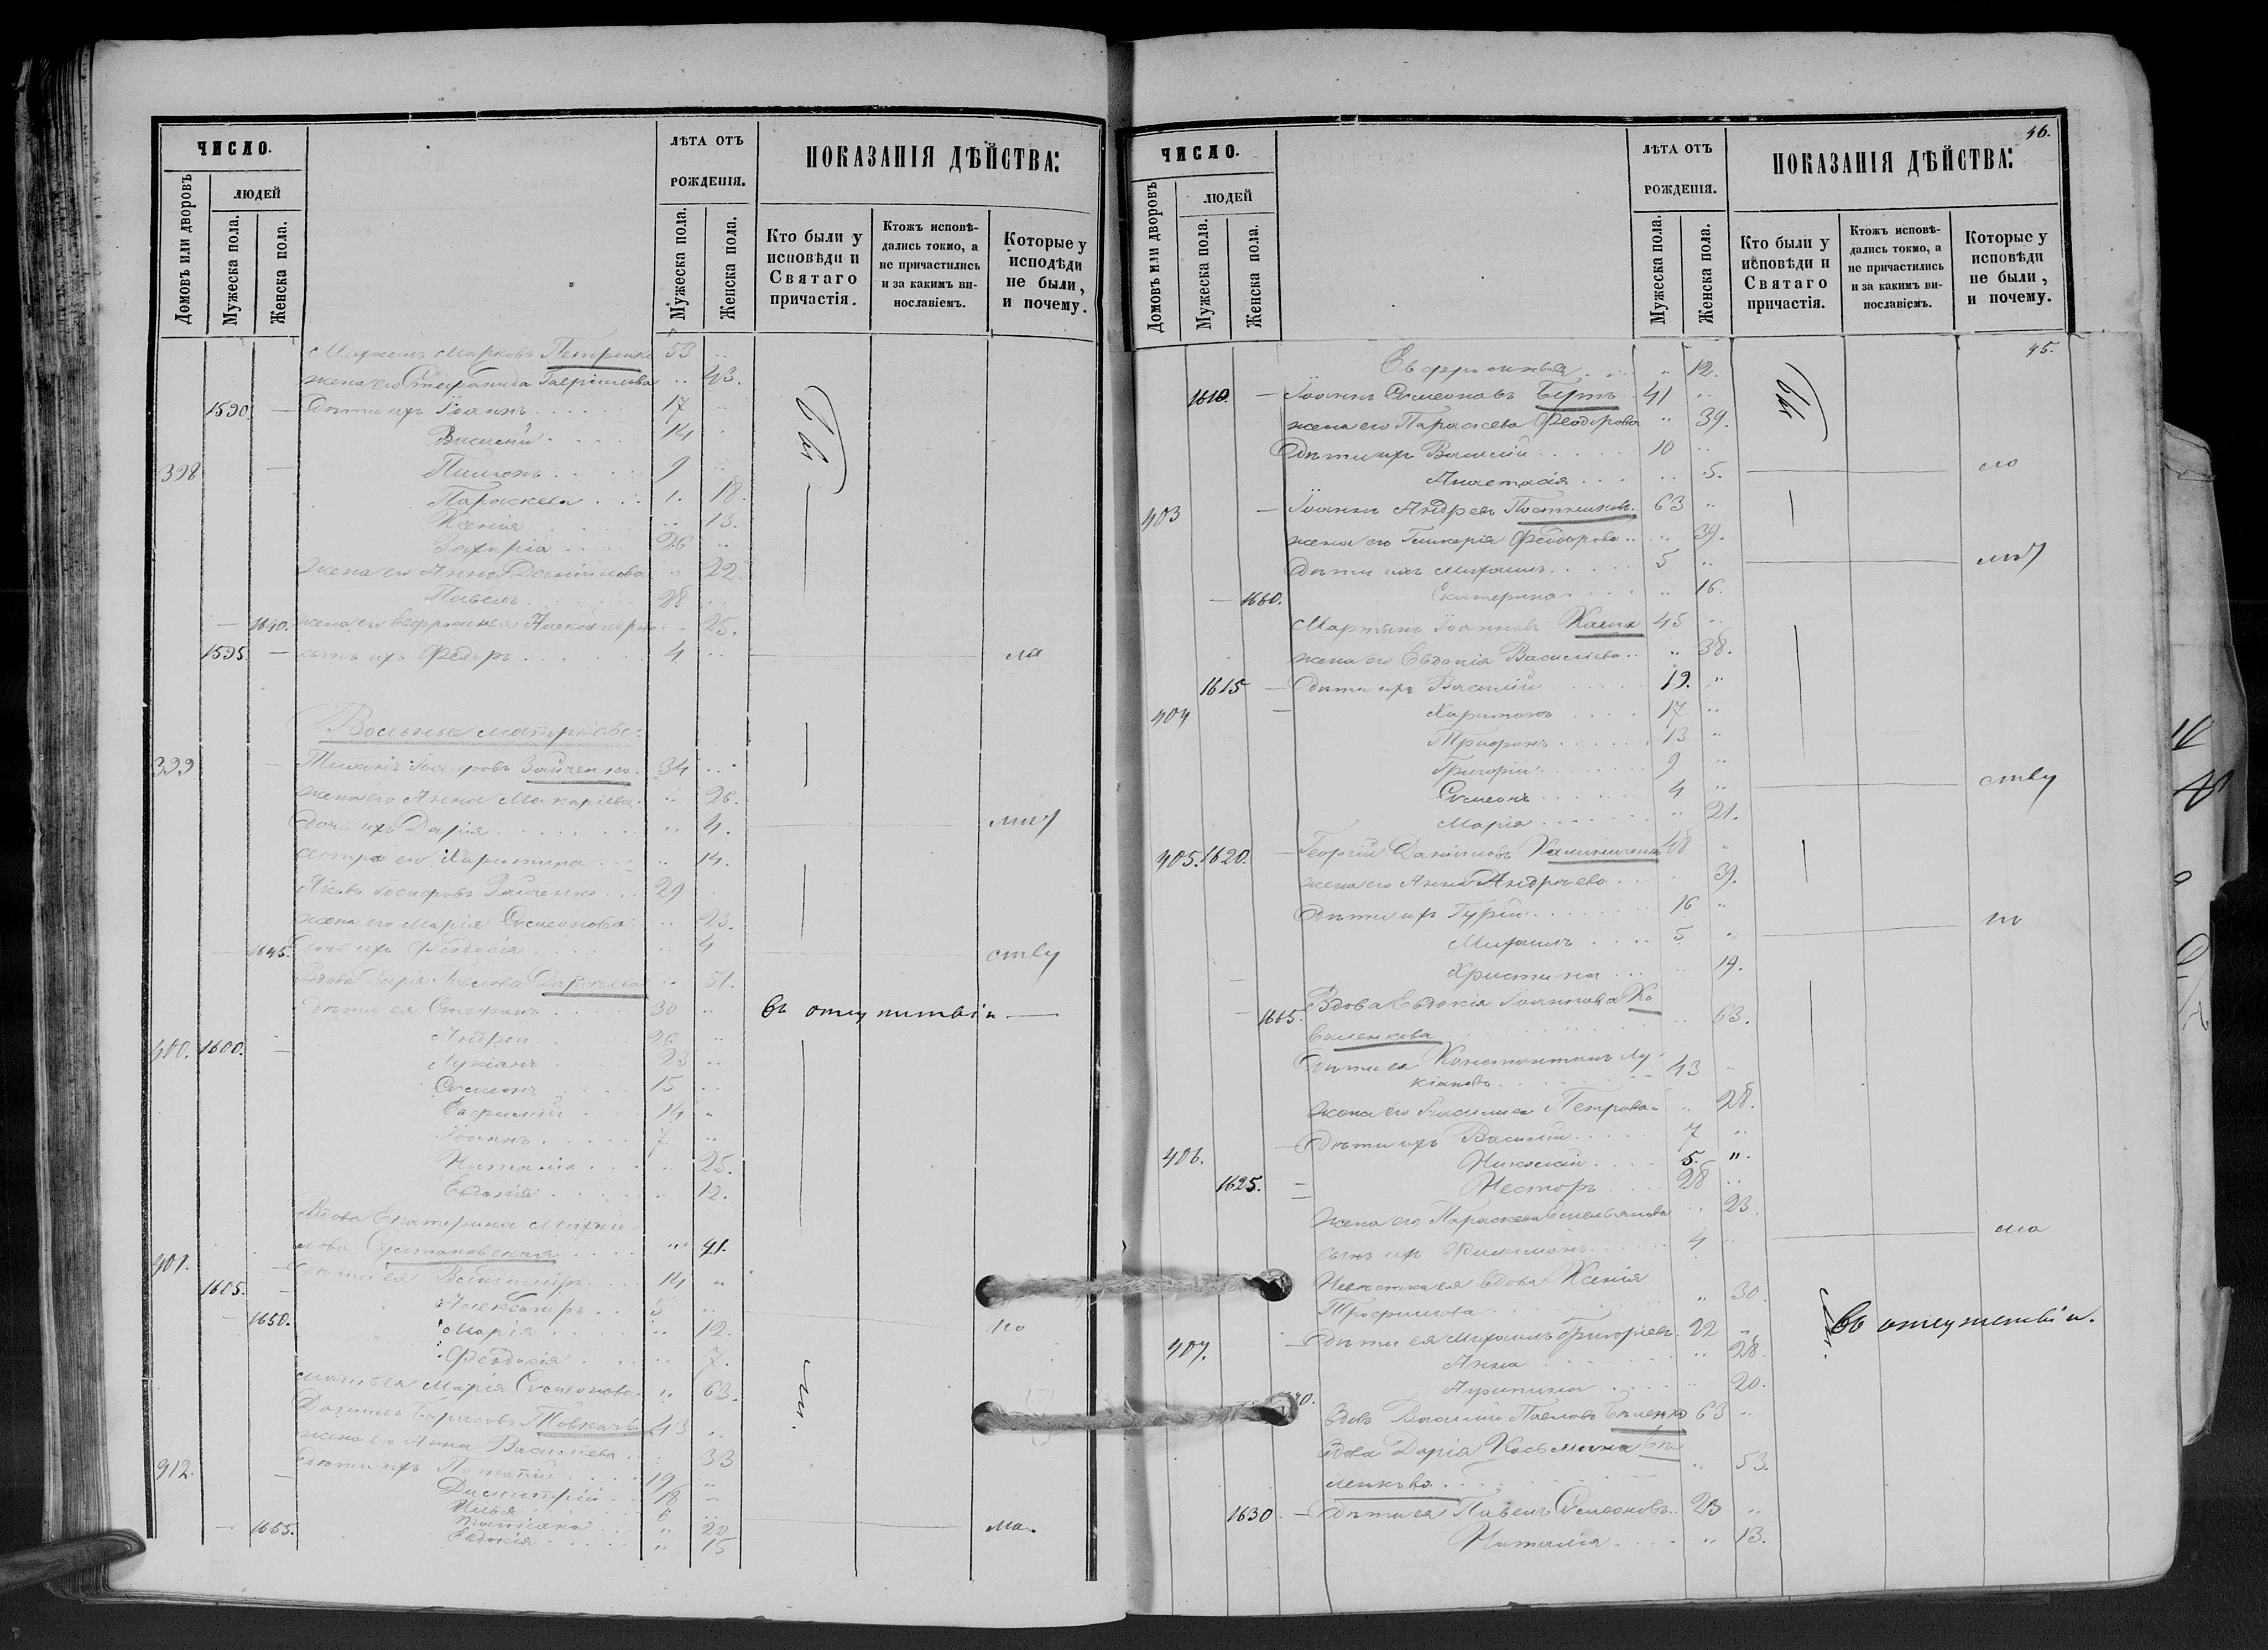 ЧИСЛО.
ЛѢТА ОТЪ
РОЖДЕНІЯ.
ПОКАЗАНІЯ ДѢЙСТВА:
Домовъ или дворовъ
ЛЮДЕЙ
Мужеска пола.
Женска пола.
Мужеска пола.
Женска пола.
Кто были у
исповѣди и
Святаго
причастія.
Ктожъ исповѣ-
дались токмо, а
не причастились
и за какимъ ви-
нославіемъ.
Которые у
исподѣди
не были,
и почему.
Михаилъ Марковъ Петренко 53 ..
жена его Стефанида Гавріилова .. 43.
1590 — дѣти ихъ Іоаннъ 17
Василій 14
398 — 9
Параскева 1. 18.
Ксенія .. 13.
Захарія 26 ..
жена его Анна Даніилова .. 22
Павелъ 28 ..
— 1640. жена его Евфросинія Александрова .. 25.
1595 — сынъ ихъ Федоръ 4 .. ла
Вольные матросы:
399 — Тихонъ Іосифовъ Зайченко 34 ..
жена его Анна Макаріева .. 26.
дочь ихъ Дарія .. 4.
сестра его Харитина .. 14.
Яковъ Іосифовъ Зайченко 29
жена его Марія Сѵмеонова .. 23.
— 1645. дочь ихъ Феодосія .. 4 ству
Вдова Дарія Павлова .. 51.
дѣти ея Стефанъ 30 .. въ отсутствіи —
400. 1600. — Андрей 26 ..
Лукіанъ 23 ..
Сѵмеонъ 15 ..
Евфимій 14 ..
Іоаннъ 7 ..
Наталія .. 25.
Евдокія .. 12.
Вдова Екатерина Михаи-
лова .. 41.
401. — дѣти ея Владиміръ 14 ..
1605. — Александръ 5 ..
— 1650. Марія .. 12. по
Феодосія .. 7.
мать ея Марія Сѵмеонова .. 63.
Даніилъ Борисовъ Товкачъ 43 ..
жена его Анна Васильева .. 33
912. — дѣти ихъ Потапій 19 ..
Димитрій 18
Илья 6 ..
Татіана .. 20
— 1655. Евдокія .. 15
46.
ЧИСЛО.
ЛѢТА ОТЪ
РОЖДЕНІЯ.
ПОКАЗАНІЯ ДѢЙСТВА:
Домовъ или дворовъ
ЛЮДЕЙ
Мужеска пола.
Женска пола.
Мужеска пола.
Женска пола.
Кто были у
исповѣди и
Святаго
причастія.
Ктожъ исповѣ-
дались токмо, а
не причастились
и за какимъ ви-
нославіемъ.
Которые у
исповѣди
не были,
и почему.
45.
Евфросинія .. 12.
1610. — Іоаннъ Сѵмеоновъ 41 ..
жена его Параскева Феодорова .. 39.
дѣти ихъ Василій 10 ..
Анастасія .. 5.
403 — Іоаннъ Андреевъ Постниковъ 63 ..
жена его Гликерія Феодорова .. 39.
дѣти ихъ Михаилъ 5 ..
— 1660. Екатерина .. 16.
Мартынъ Іоанновъ 45 ..
жена его Евдокія Василіева .. 38.
1615 — дѣти ихъ Василій 19. ..
404 — Харитонъ 17 ..
Трифонъ 13 ..
Григорій 9 ..
Сѵмеонъ 4 .. ству
Марія .. 21.
405. 1620. — Георгій Даніиловъ Калиниченко 48 ..
жена его Анна Андреева .. 39.
дѣти ихъ Гурій 16 ..
Михаилъ 5 .. по
Христина .. 19.
— 1665. Вдова Евдокія Іоаннова Ко
валенкова .. 63.
дѣти ея Константинъ Лу-
кіановъ 43 ..
жена его Василиса Петрова .. 28.
406. — дѣти ихъ Василій 7 ..
Николай 5. ".
1625. — Несторъ 28 ..
жена его Параскева Емельянова .. 23.
сынъ ихъ Филимонъ 4 .. ла
Невѣстка ея вдова Ксенія
Трофимова .. 30.
407. — дѣти ея Михаилъ Григоріевъ 22 .. въ отсутствіи.
Анна .. 28.
.. 20.
вдовъ Василій Павловъ Бѣленко 63 ..
вдова Дарія Косьмина Бѣ-
ленкова .. 53.
1630 — дѣти ея Павелъ Сѵмеоновъ 23 ..
Наталія .. 13.